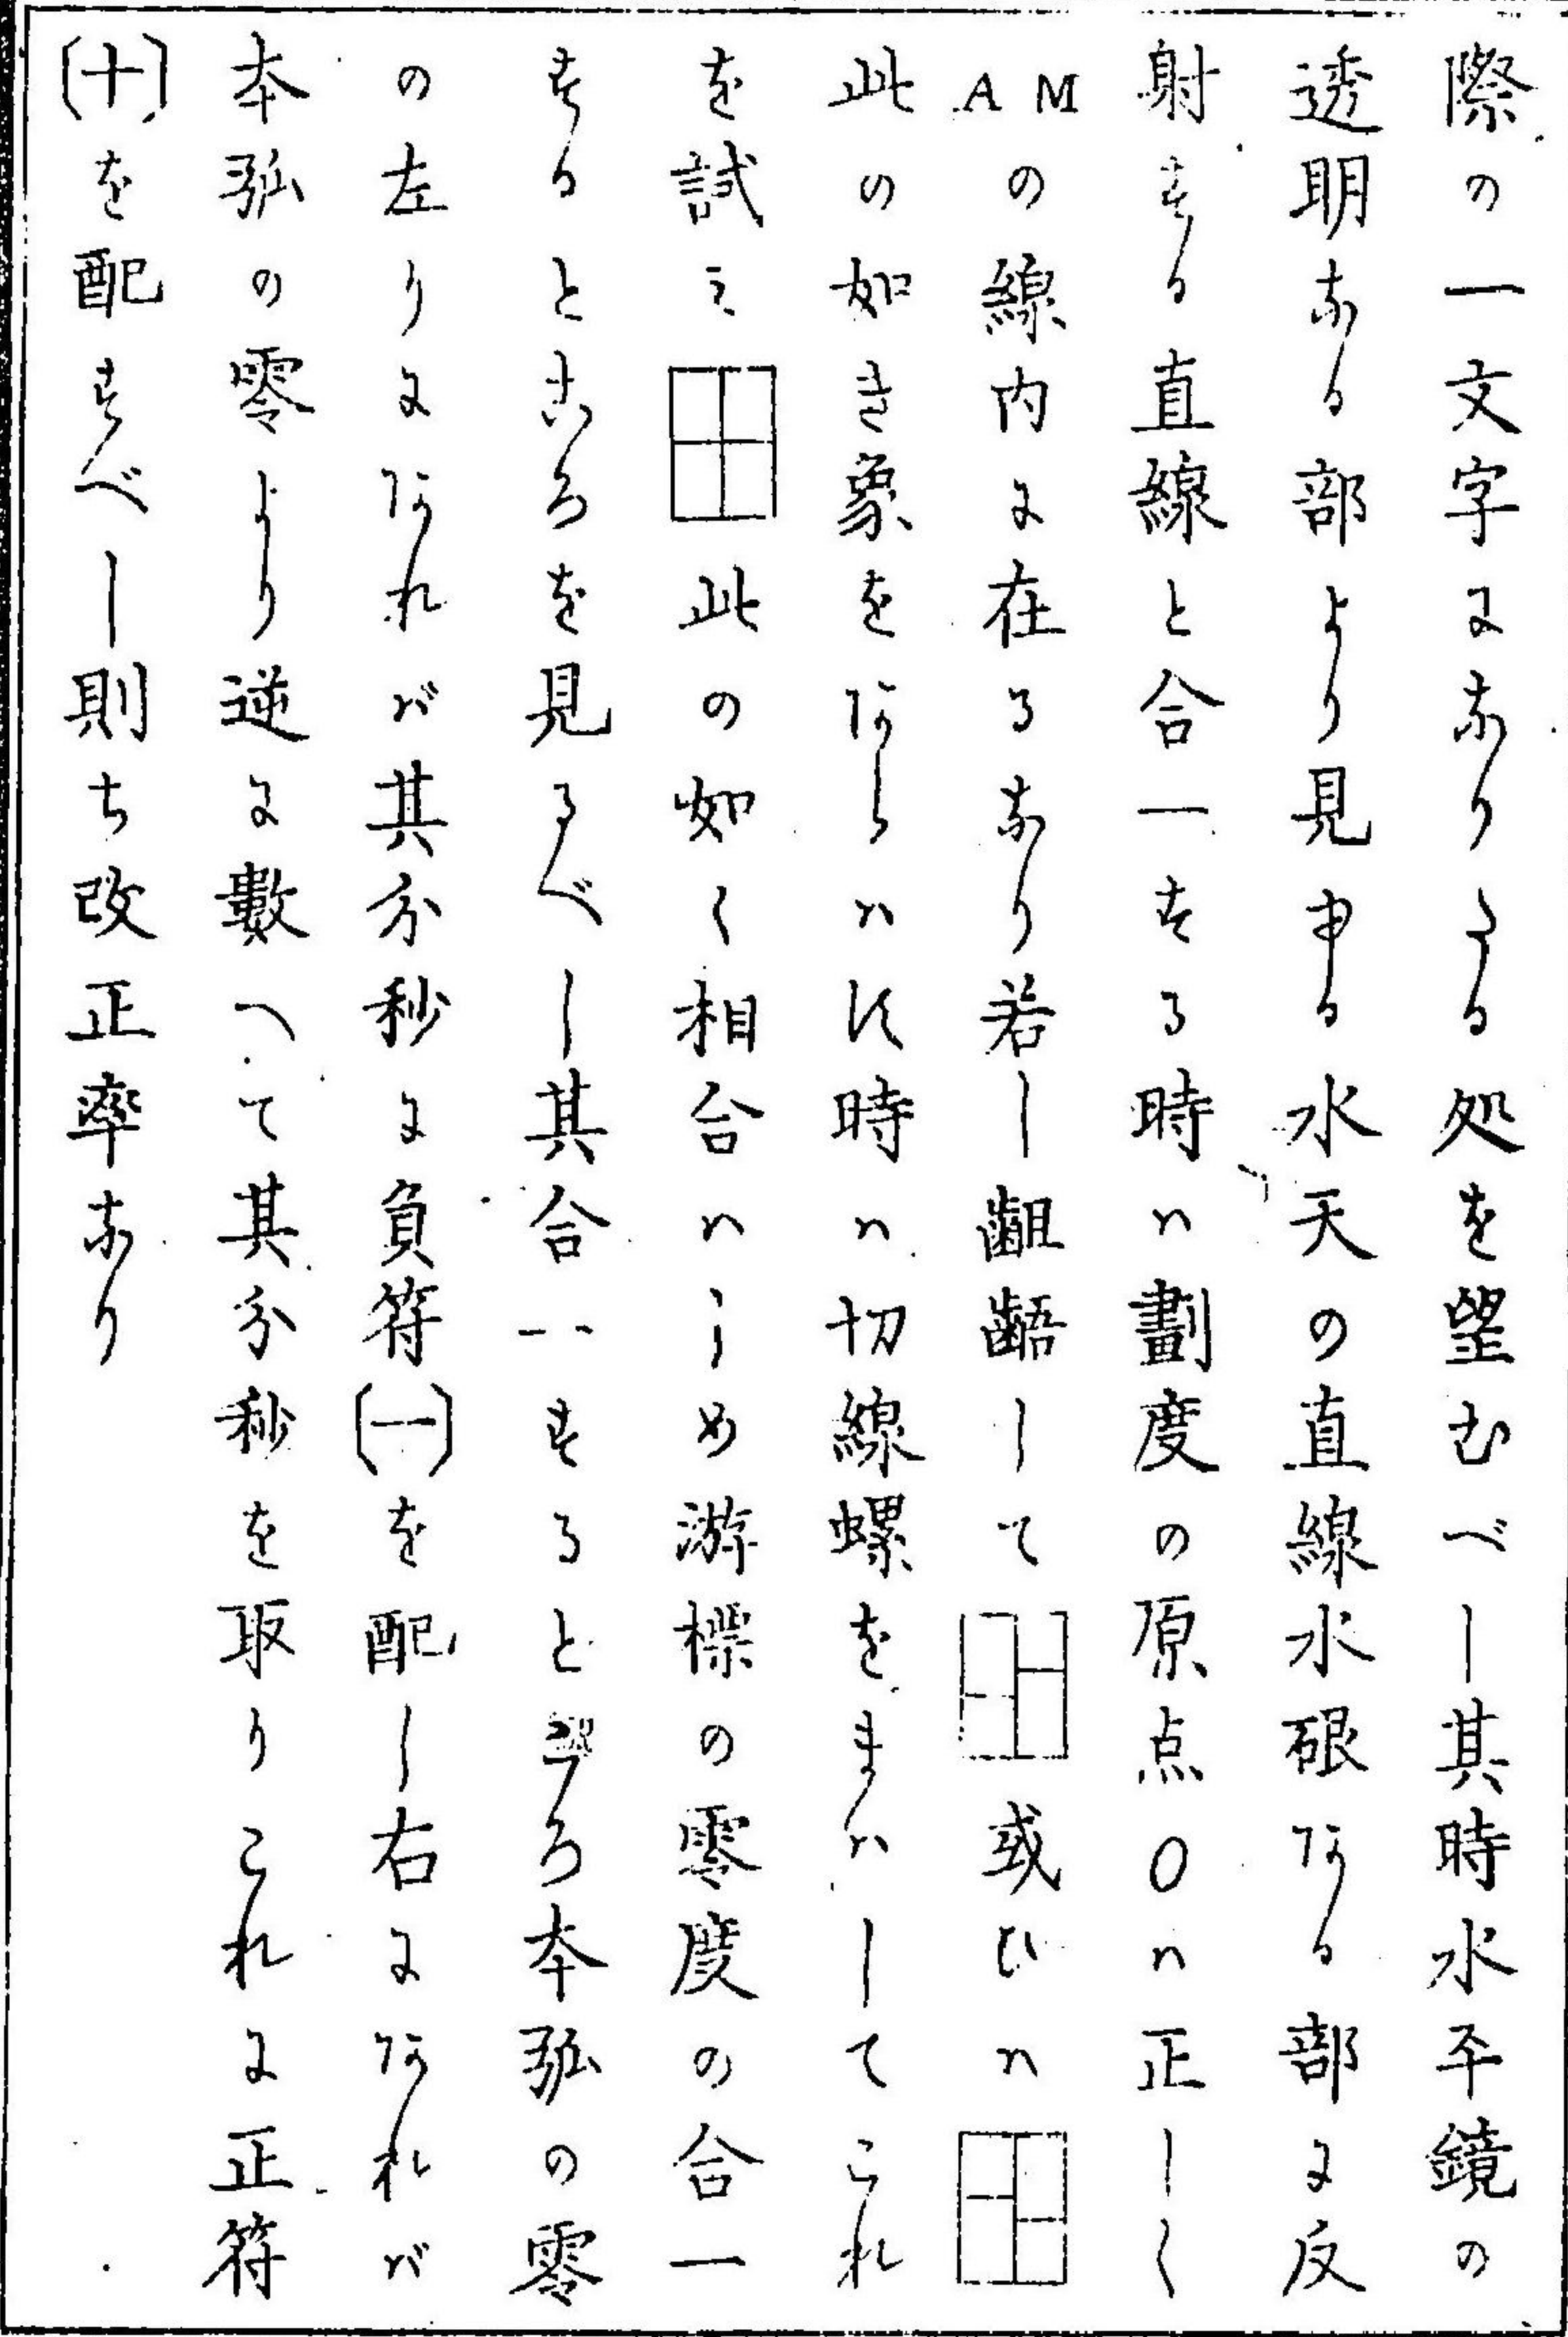 際の一文字になりたる処を望むべし其時水平鏡の
透明なる部より見ゆる水天の直線水硍ある部に反
射する直線と合一する時ハ劃度の原点0ハ正しく
AMの線内に在るなり若し齟齬して或ひハ
此の如き象をあらハす時ハ切線螺をまハしてこれ
を試ミ此の如く相合ハしめ游標の零度の合一
するところを見るべし其合一するところ本弧の零
の左りにあれバ其分秒に負符(一)を配し右にあれバ
本弧の零より逆に數へて其分秒を取りこれに正符
(十)を配すべし則ち改正率なり